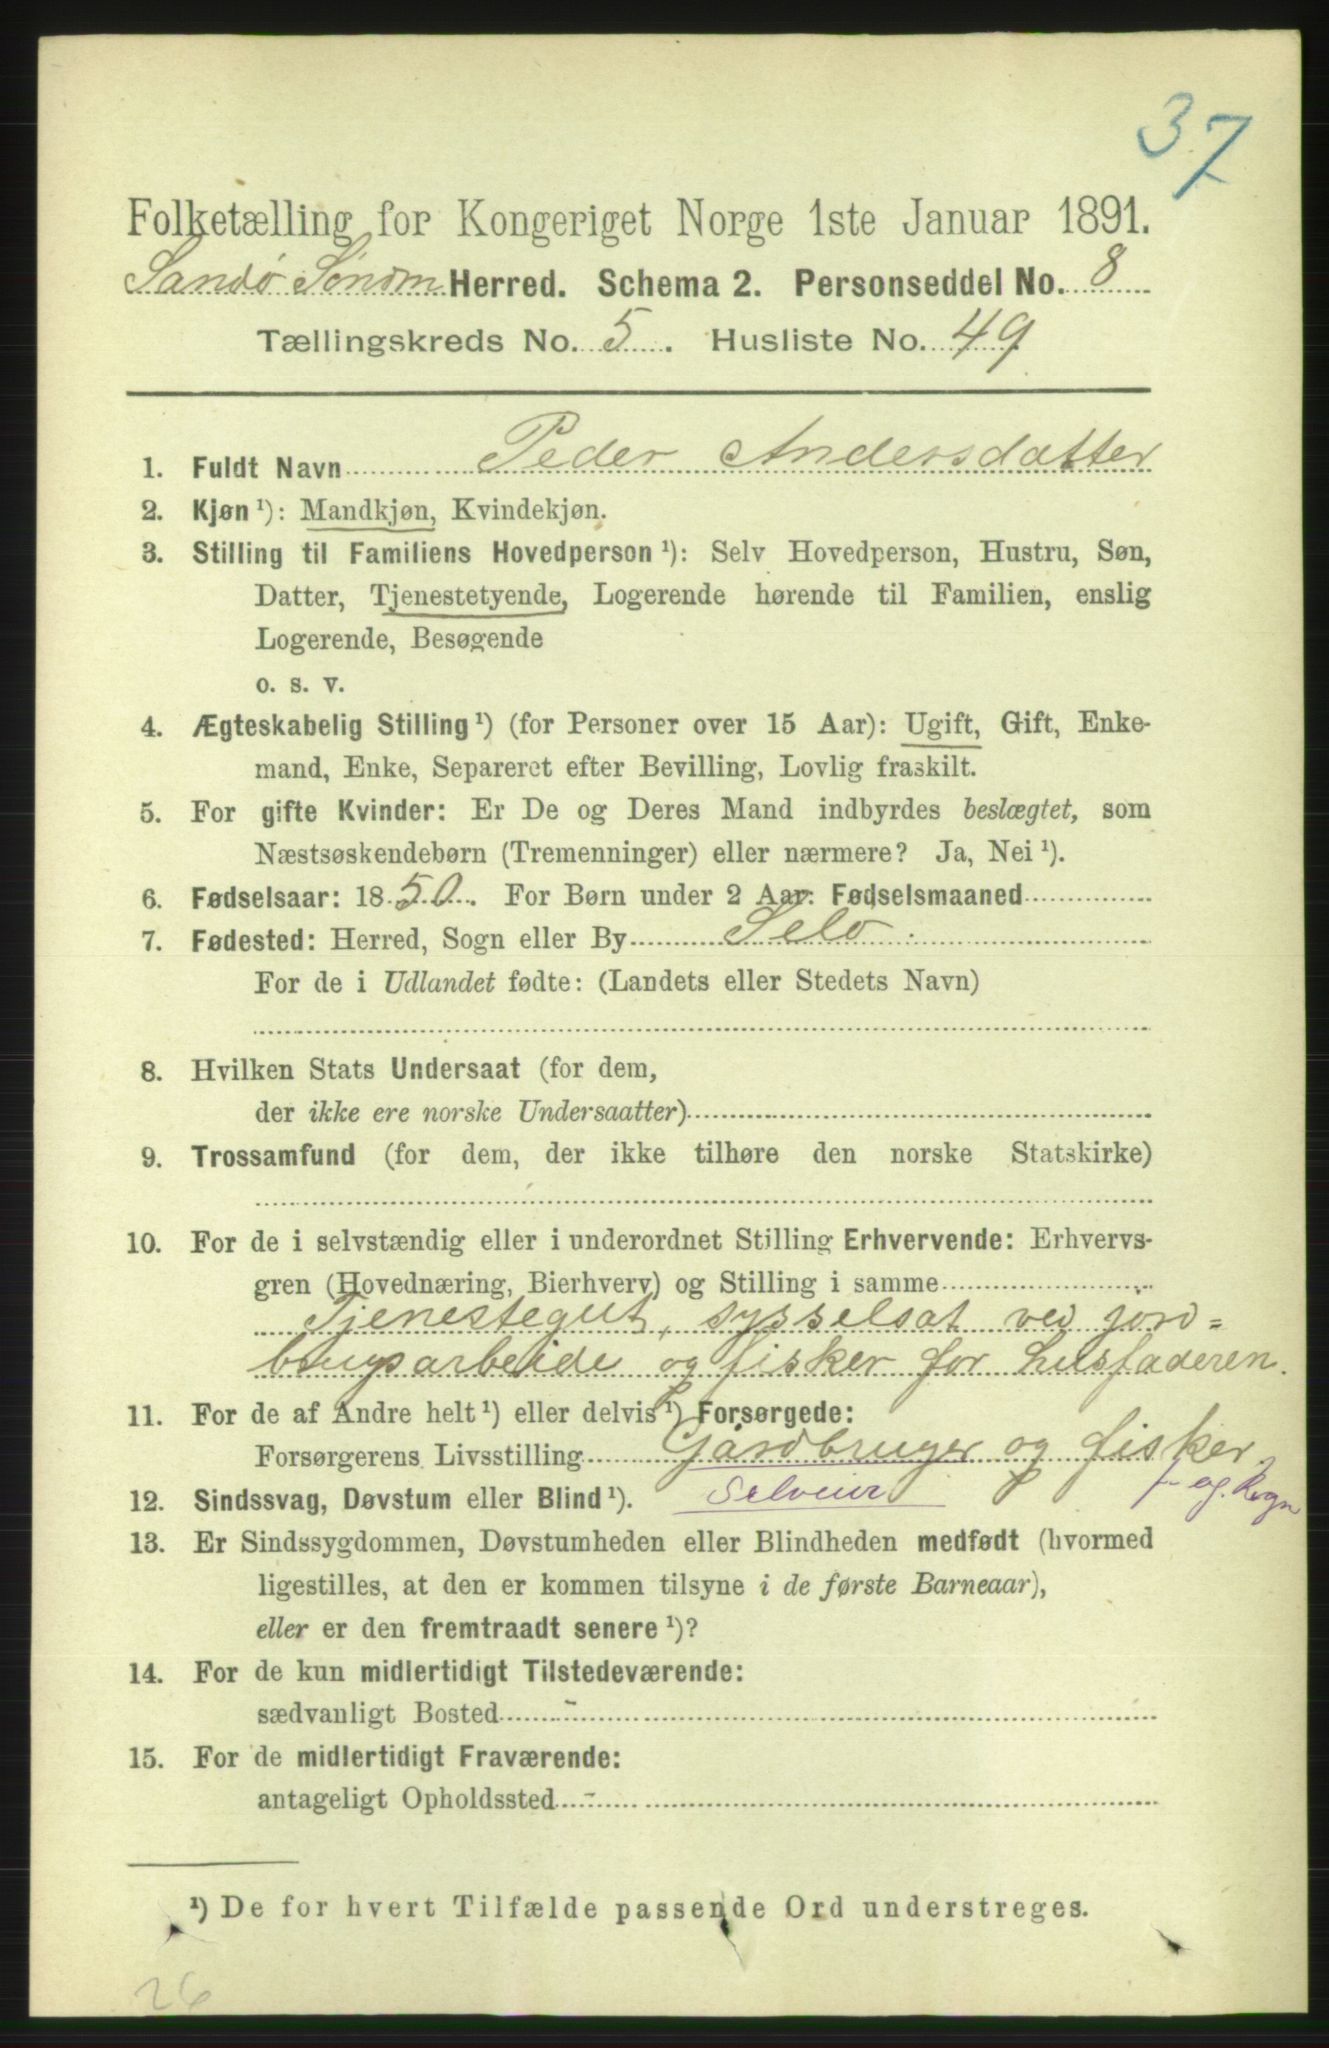 37
Folketælling for Kongeriget Norge 1ste Januar 1891.
Sandø Søndm Herred. Schema 2. Personseddel No. 8
Tællingskreds No. 5. Husliste No. 49
1. Fuldt Navn Peder Andersdatter
2. Kjøn ¹): Mandkjøn, Kvindekjøn.
3. Stilling til Familiens Hovedperson ¹): Selv Hovedperson, Hustru, Søn,
Datter, Tjenestetyende, Logerende hørende til Familien, enslig
Logerende, Besøgende
o. s. v.
4. Ægteskabelig Stilling ¹) (for Personer over 15 Aar): Ugift, Gift, Enke-
mand, Enke, Separeret efter Bevilling, Lovlig fraskilt.
5. For gifte Kvinder: Er De og Deres Mand indbyrdes beslægtet, som
Næstsøskendebørn (Tremenninger) eller nærmere? Ja, Nei ¹).
6. Fødselsaar: 1850. For Børn under 2 Aar: Fødselsmaaned
7. Fødested: Herred, Sogn eller By Selø
For de i Udlandet fødte: (Landets eller Stedets Navn)
8. Hvilken Stats Undersaat (for dem,
der ikke ere norske Undersaatter)
9. Trossamfund (for dem, der ikke tilhøre den norske Statskirke)
10. For de i selvstændig eller i underordnet Stilling Erhvervende: Erhvervs-
gren (Hovednæring, Bierhverv) og Stilling i samme
Tjenestegut, sysselsat ved jord=
brugsarbeide og fisker for husfaderen.
11. For de af Andre helt ¹) eller delvis ¹) Forsørgede:
Forsørgerens Livsstilling Gårdbruger og fisker
12. Sindssvag, Døvstum eller Blind ¹). Selveier f. og.
13. Er Sindssygdommen, Døvstumheden eller Blindheden medfødt (hvormed
ligestilles, at den er kommen tilsyne i de første Barneaar),
eller er den fremtraadt senere ¹)?
14. For de kun midlertidigt Tilstedeværende:
sædvanligt Bosted -
15. For de midlertidigt Fraværende:
antageligt Opholdssted -
¹) De for hvert Tilfælde passende Ord understreges.
26